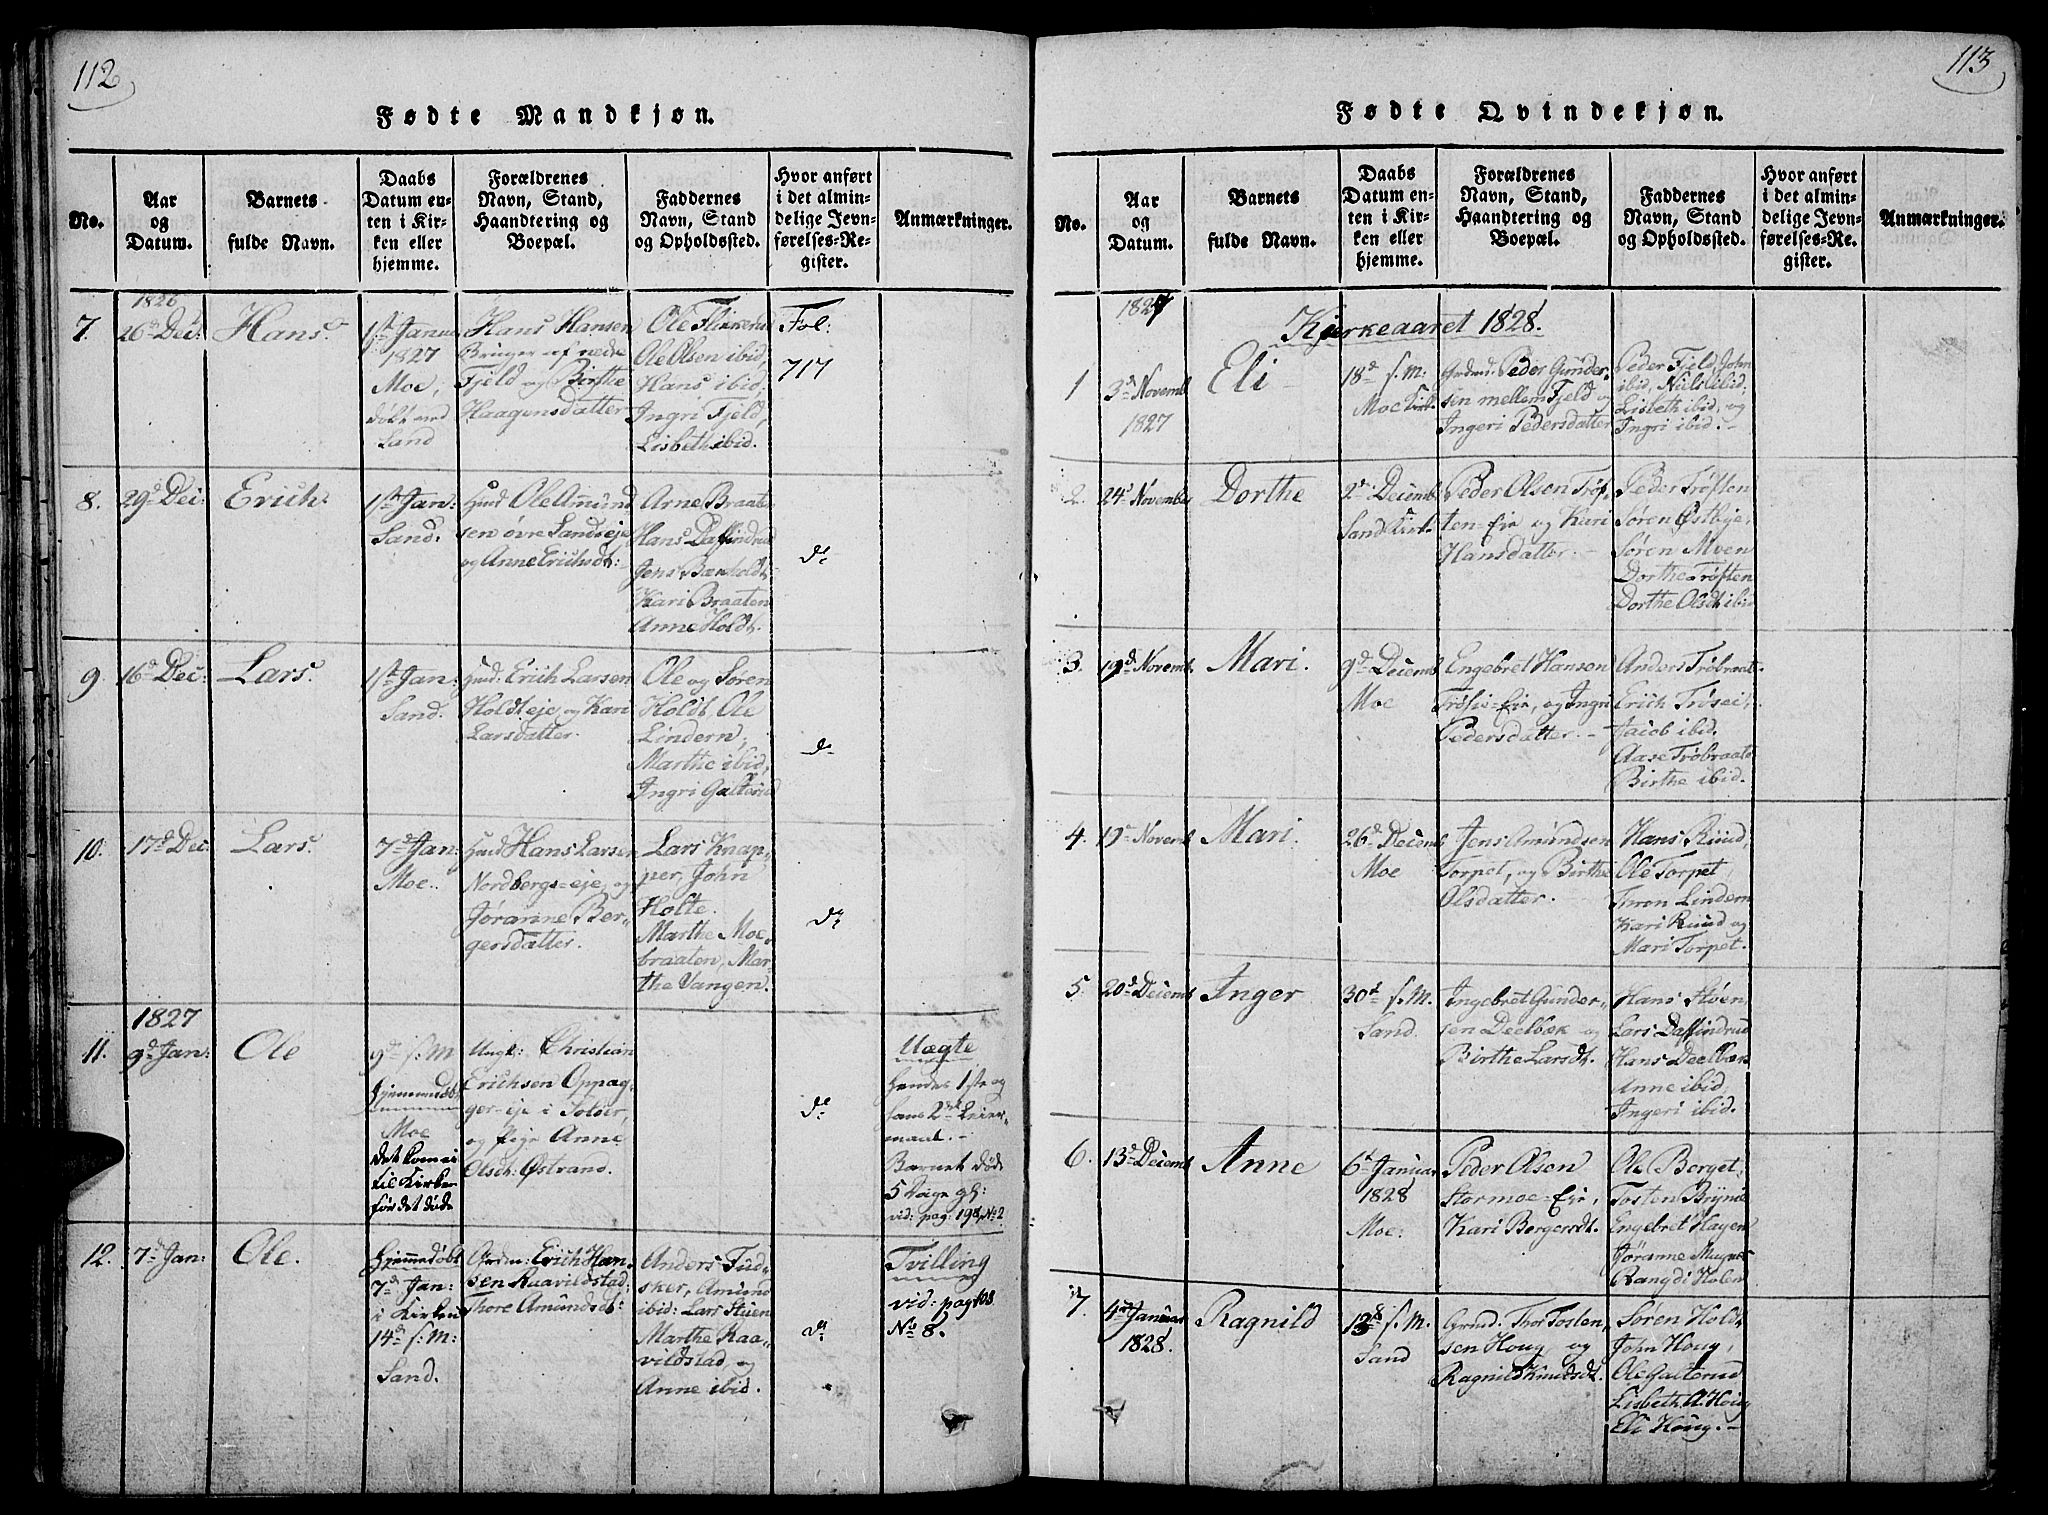 112
Fødte Mandkjøn.
No.
Aar
og
Datum.
Barnets
fulde Navn.
Daabs
Datum en-
ten i Kir-
ken eller
hjemme.
Forældrenes
Navn, Stand,
Haandtering og
Boepæl.
Faddernes
Navn, Stand
og Opholdssted.
Hvor anført
i det almin-
delige Jevn-
førelses-Re-
gister.
Anmærkninger.
7.
1826
26 Dec:
Hans.
1st Janu
1827
Moe,
døbt ved
Sand
Hans Hansen
Bruger af nedre
Fjeld og Birthe
Haagensdatter
Ole Flikkerud
Ole Olsen ibid,
Hans ibid,
Ingri Fjeld,
Lisbeth ibid.
Fol:
717
8.
29d Dec:
Erich
1st Jan:
Sand.
Huusd Ole Amund
sen øvre Sandseje
og Anne Erichsdt:
Arne Braaten
Hans Daffindrud
Jens Bærholdt
Kari Braaten
Anne Holdt.
do
9.
16d Dec:
Lars.
1st Jan:
Sand:
Huusd: Erich Larsen
Holdt eje og Kari
Larsdatter.
Ole og Søren
Holdt, Ole
Lindern,
Marthe ibid,
Ingri Galterud
do
10.
17d Dec:
Lars.
7d Jan:
Moe.
Huusd Hans Larsen
Nordbergs-eje og
Jøranne Ber-
gersdatter.
Lars Knap-
per, John
Holte.
Marthe Moe-
braaten, Mar-
the Vangen.
do
11.
1827
9d Jan:
Ole
9d s: M
Hjemmedøbt
Moe
det kom ei
til Kirken
før det døde
Ungk: Christian
Erichsen Oppag-
ger-eje i Soløer,
og Pige Anne
Olsdt: Østrand.
do
Uægte
hendes 1ste og
hans 2det Leier-
maal.-
Barnet døde
5 Dage gl:
vid: pag: 198, No 2
12.
7d Jan:
Ole.
Hjemmedøbt
7d Jan:
i Kirken
14d s: M:
Sand.
Grdm: Erich Han-
sen Raavildstad,
Thore Amundsdt:
Anders Tud-
sker, Amund
ibid: Lars Stuen
Marthe Raa-
vildstad, og
Anne ibid.
do
Tvilling
vid: pag 108.
No 8.
113
Fødte Qvindekjøn.
No.
Aar
og
Datum.
Barnets
fulde Navn.
Daabs
Datum en-
ten i Kir-
ken eller
hjemme.
Forældrenes
Navn, Stand,
Haandtering og
Boepæl.
Faddernes
Navn, Stand
og Opholdssted.
Hvor anført
i det almin-
delige Jevn-
førelses-Re.
gister.
Anmærkninger.
1827
Kirkeaaret 1828.
1
3d Novemb
1827
Eli
18d s. M:
Moe Kirk.
Grdmd. Peder Gunder-
sen mellem Fjeld og
Ingeri Pedersdatter
Peder Fjeld, John
ibid, Niels ibid,
Lisbeth ibid, og
Ingri ibid.-
2.
24d November
Dorthe
2d Decemb
Sand Kirk.
Peder Olsen Trøf-
ten-Eie og Kari
Hansdatter.-
Peder Trøften
Søren Østbye,
Søren Moen
Dorthe Trøften
Dorthe Olsdt ibid
3.
19d Novemb.
Mari.
9d Decemb
Moe
Engebret Hansen
Trøsie-Eie, og Ingri
Pedersdatter.-
Anders Trøbraat-
Erich Trøsei,
Jacob ibid.
Aase Trøbraate
Birthe ibid.
4.
19d Novemb
Mari.
26d Decemb
Moe
Jens Amundsen
Torpet, og Birthe
Olsdatter.-
Hans Ruud,
Ole Torpet,
Thron Lindern
Kari Ruud og
Mari Torpet.
5.
20d Decemb
Inger
30d s. M.
Sand.
Ingebret Gunder-
sen Deelbæk og
Birthe Larsdt.
Hans Støen,
Lars Daffindrud
Hans Deelbæk
Anne ibid,
Ingeri ibid.
6.
13d Decemb
Anne
6d Januar
1828
Moe:
Peder Olsen
Stormoe-Eie,
Kari Bergersdt.
Ole Berget,
Tosten Brynie
Engebret Hagen
Jøranne
Rangdi Holen
7.
4d Januar
1828.
Ragnild
13d s. M.
Sand
Grmd. Thor Tosten-
sen Houg og
Ragnild Knudsdt.
Søren Hold-
John Houg,
Ole Galterud
Lisbeth A. Houg
Eli Houg.-